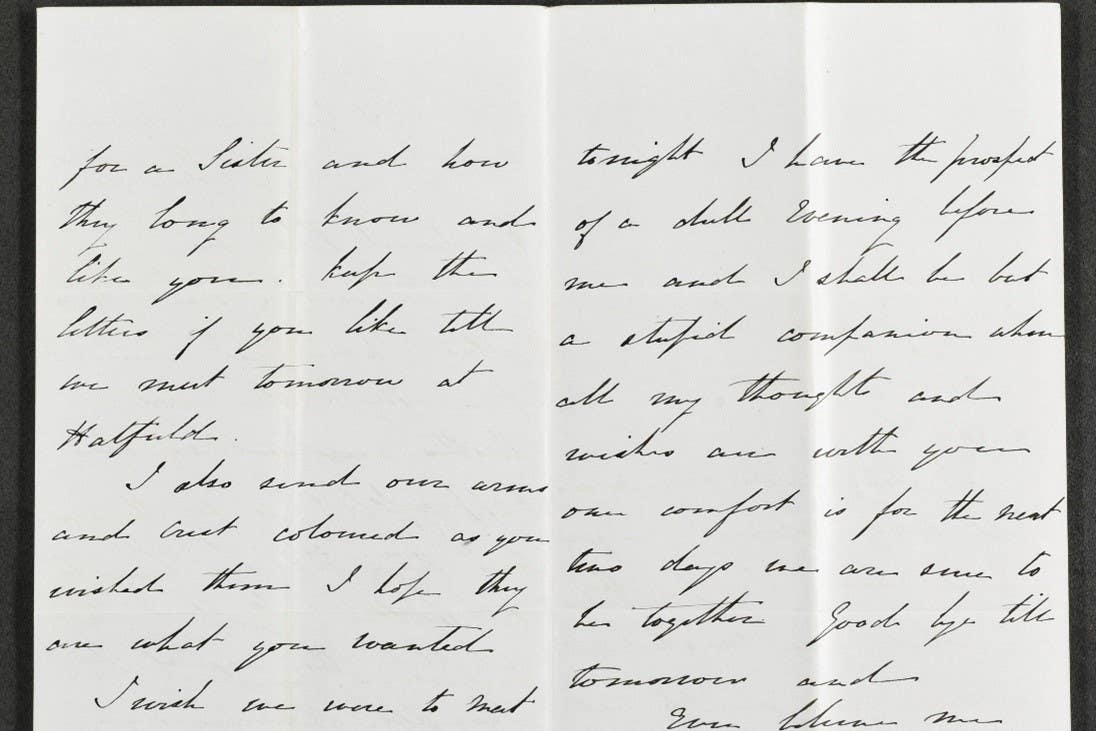 for a Sister and how
they long to know and
like you. keep the
letters if you like till
we meet tomorrow at
Hatfield.
I also send our arms
and crest coloured as you
wished them I hope they
are what you wanted
I wish we were to meet
tonight I have the prospect
of a dull Evening before
me and I shall be but
a stupid companion when
all my thoughts and
wishes are with you
one comfort is for the next
two days we are sure to
be together Good bye till
tomorrow and
Ever believe me